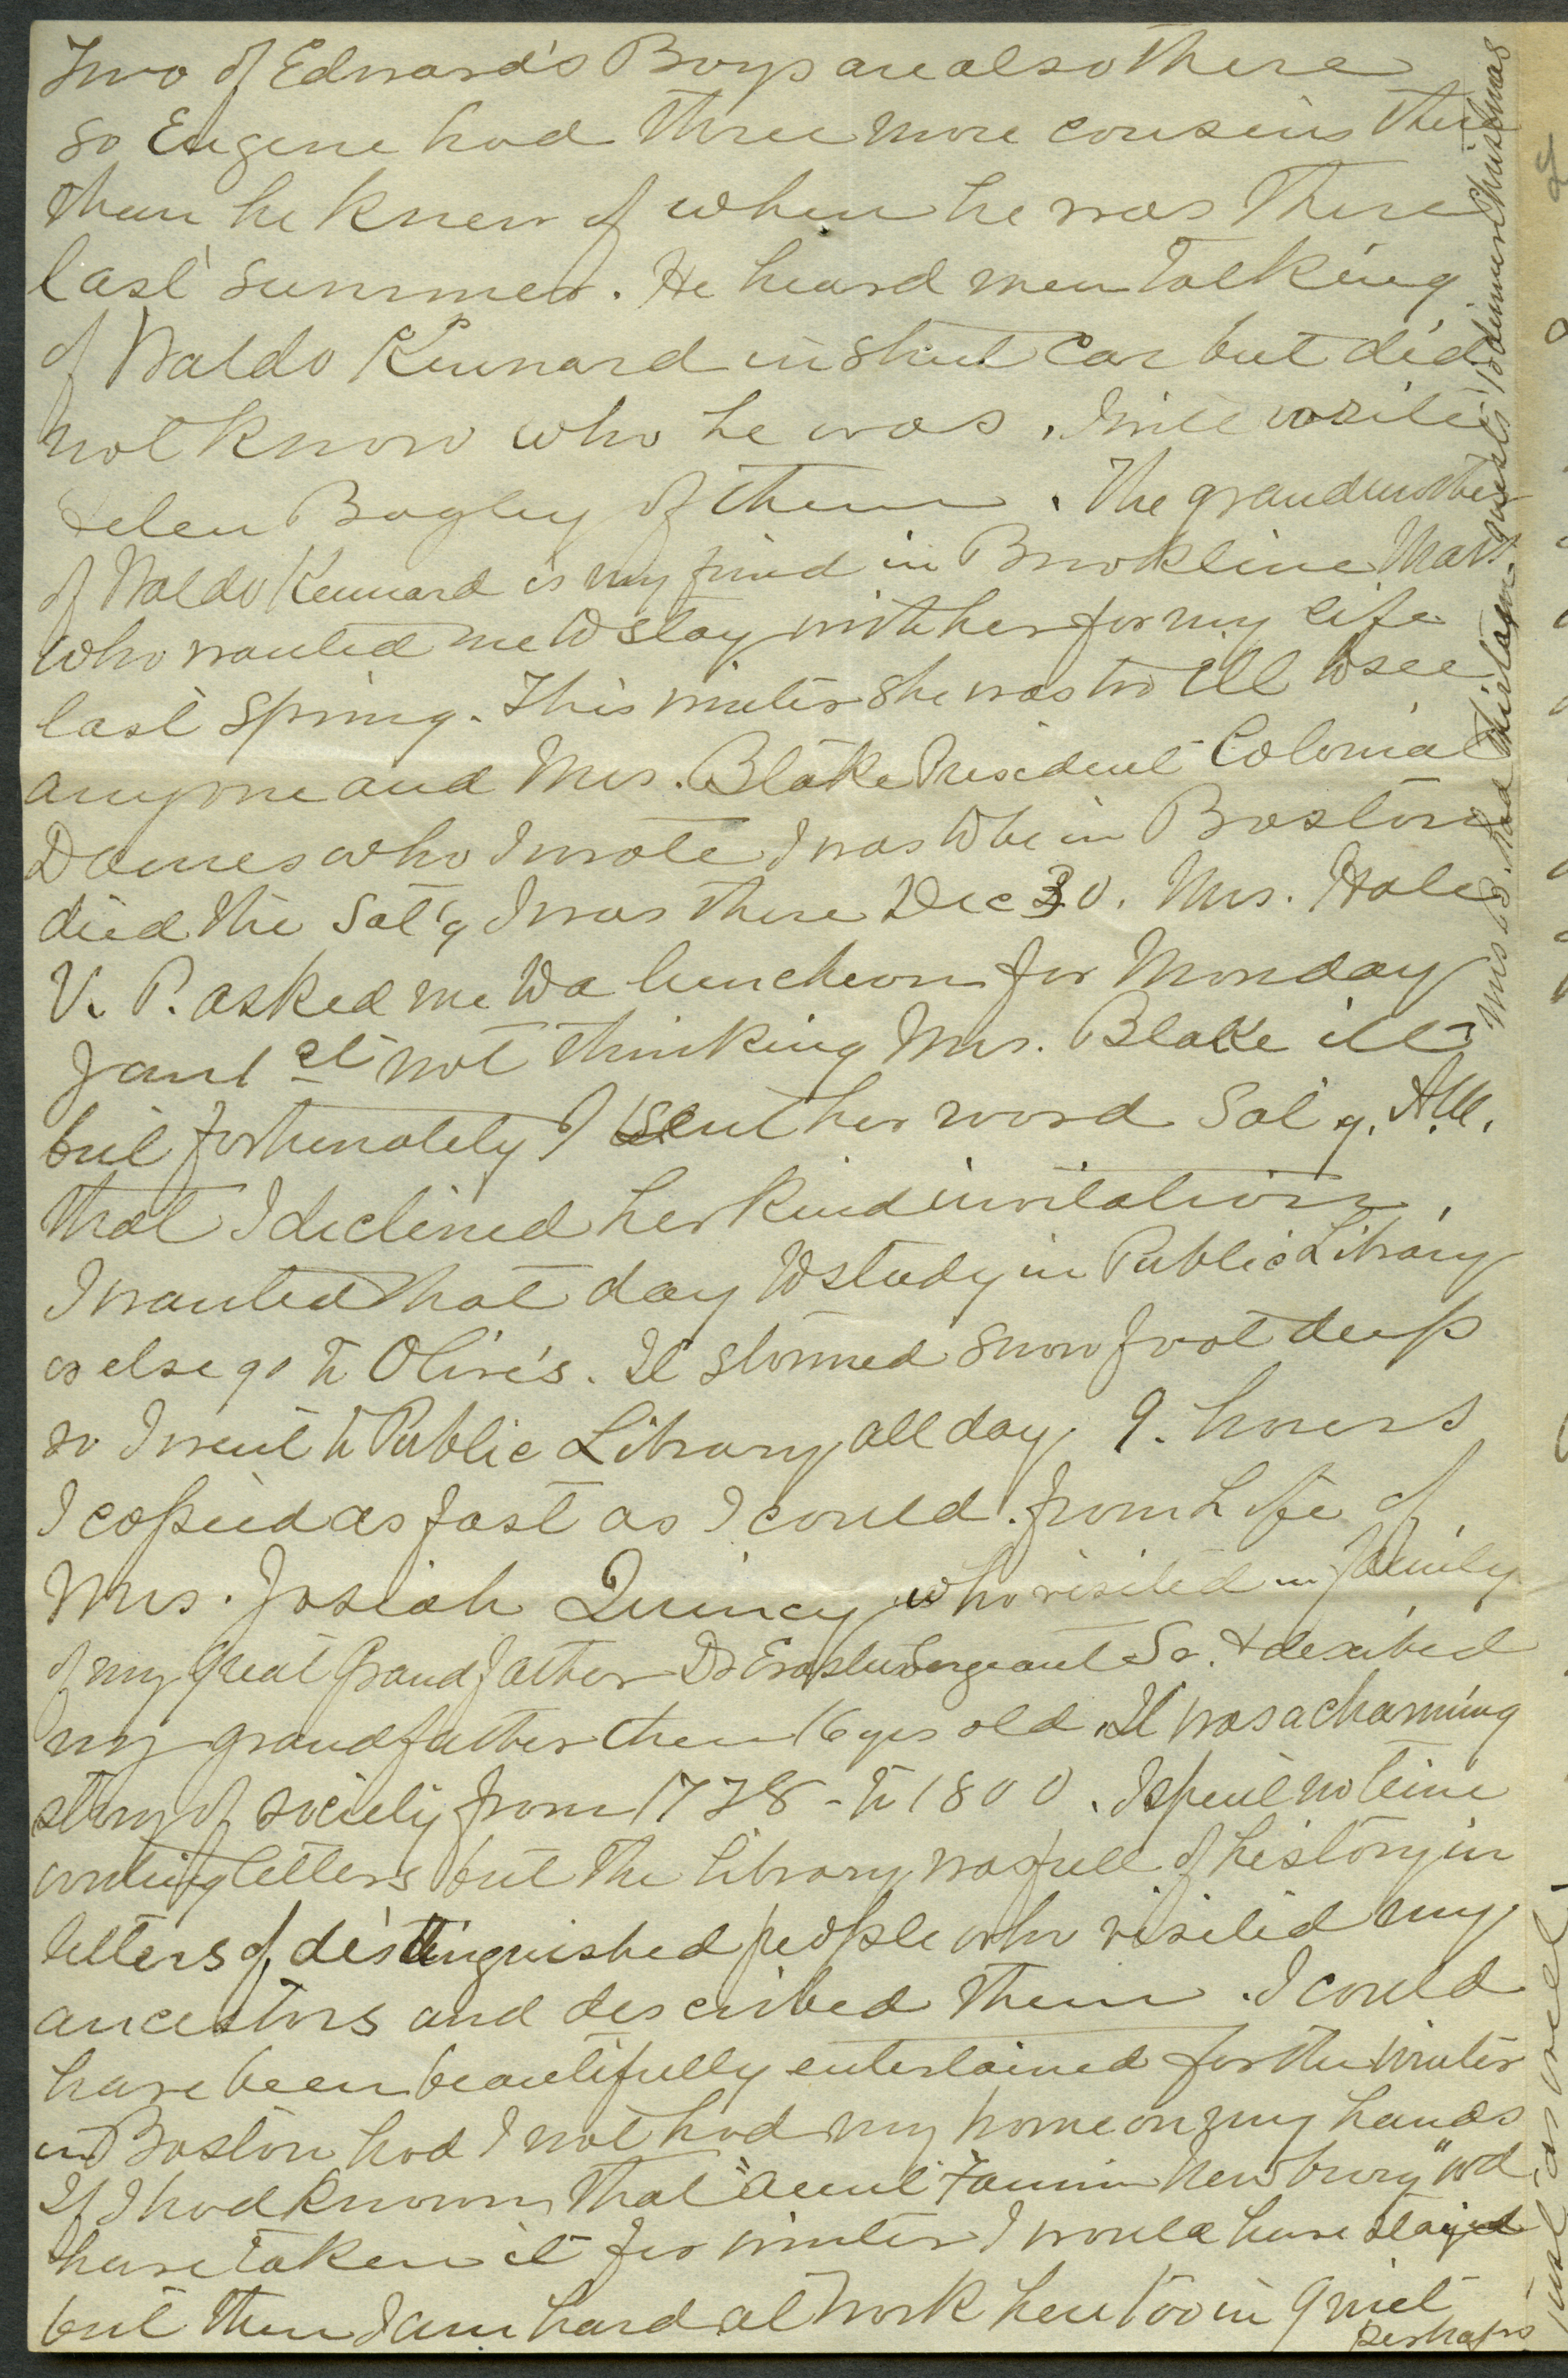 Two of Edward's Boys are also there
so Eugene had three more cousins there
than he knew of when he was there
last summer. He heard men talking
of Waldo Kennard in street car but did
not know who he was. I will write
Helen Bagley of them. The grandmother
of Waldo Kennard is my friend in Brookline Mass
who wanted me to stay with her for my life
last spring. This winter she was too ill to see
anyone and Mrs. Blake President Colonial
Dames who I wrote I was to be in Boston
died the Sat'y I was there Dec 30. Mrs. Hale
V. P. asked me to a luncheon for Monday
Jan 1st not thinking Mrs. Blake ill
but fortunately I sent her word Sat'y. A.M.
that I declined her kind invitation.
I wanted that day to study in Public Library
or else go to Olive's. It stormed snow foot deep
so I went to Public Library all day 9. hours
I copied as fast as I could. from Life of
Mrs. Josiah Quincy who visited in family
of my Great Grandfather Dr Erastus Sergeant Sr. & described
my grandfather then 16 yrs old. It was a charming
story of society from 1778 - to 1800. I spent no time
writing letters but the library was full of history in
letters of distinguished people who visited my
ancestors and described them. I could
have been beautifully entertained for the winter
in Boston had I not had my home on my hands
If I had known that "Aunt Fannie Newbury" wd
have taken it for winter I would have stayed
but then I am hard at work here too in quiet
perhaps
just as well.
Mrs B. had thirteen guests to dinner Christmas